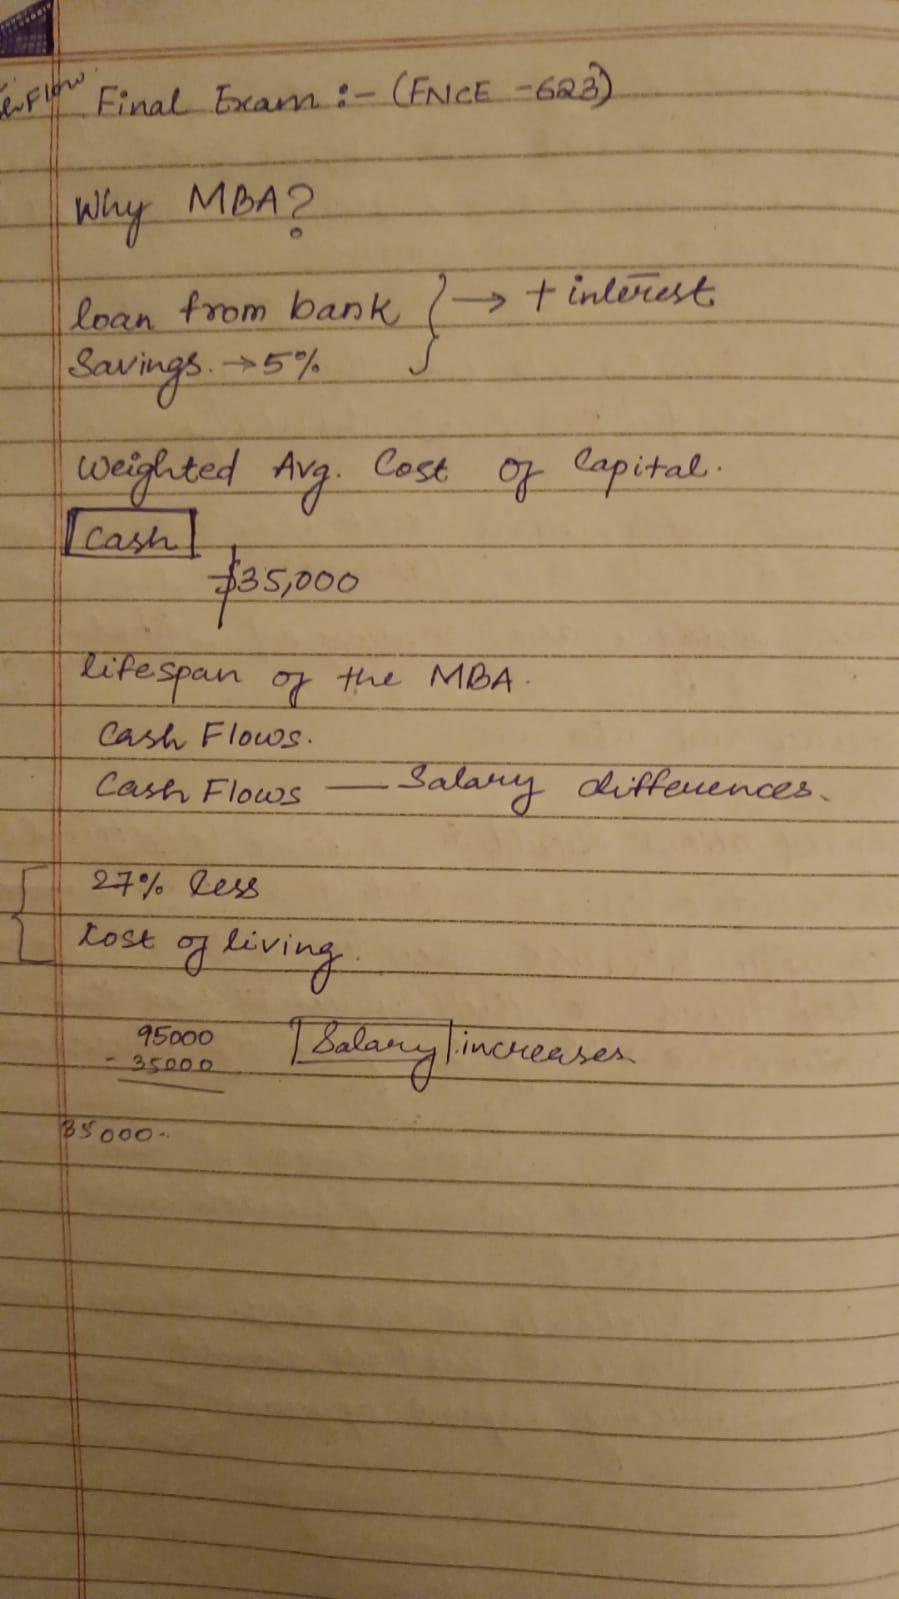 Flow
Final Exam :- (FNCE -623)
Why MBA?
loan from bank } → + interest
Savings. → 5%
Weighted Avg. Cost of Capital.
Cash
$35,000
lifespan of the MBA.
Cash Flows.
Cash Flows — Salary differences.
27% less
Cost of living.
95000 Salary increases
- 35000
35000-